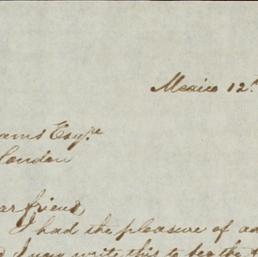 Mexico 12th
ams Esqre
London
ar friend,
I had the pleasure of ad
I now write this to beg the